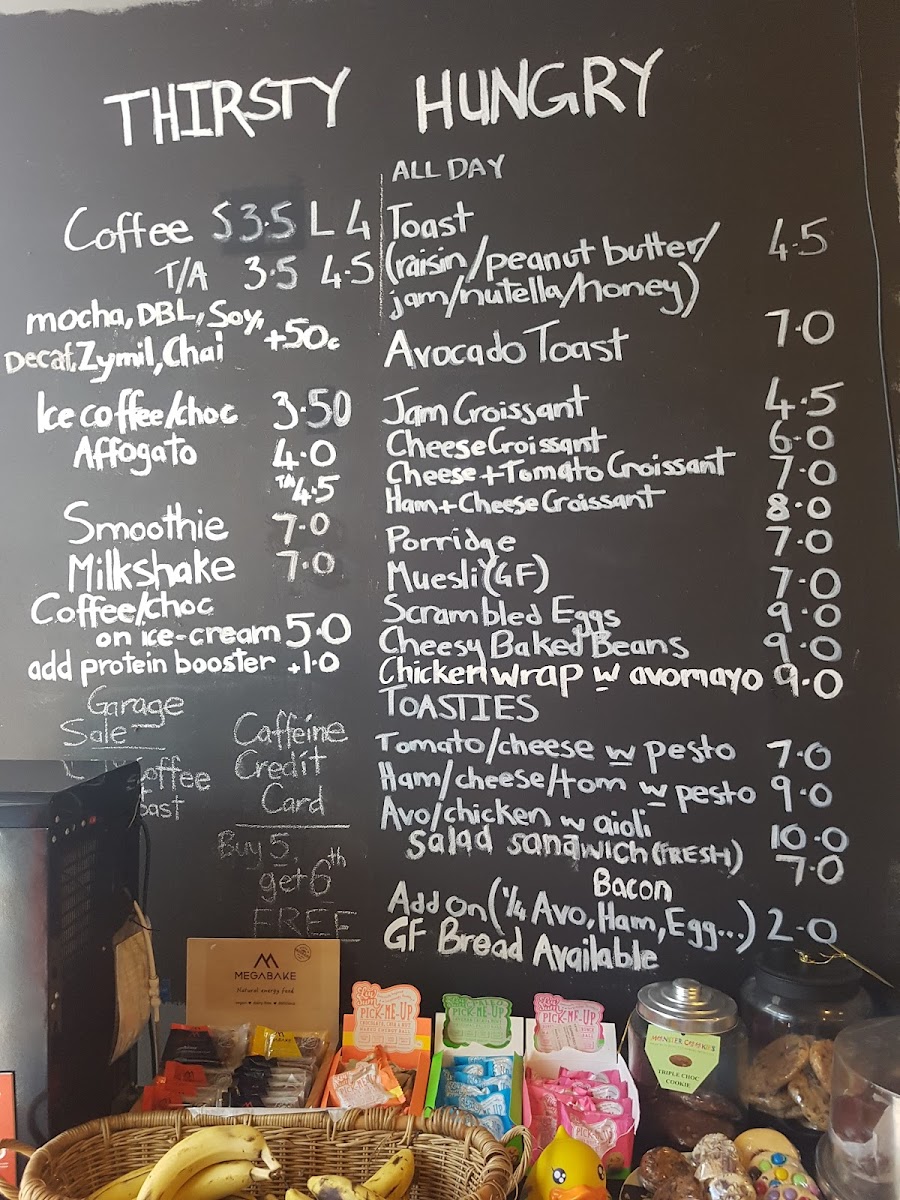 THIRSTY HUNGRY
Coffee S 3.5 L 4
T/A 3.5 4.5
mocha, DBL, Soy,
Decaf, Zymil, Chai +50c
Ice coffee/choc 3.50
Affogato 4.0
TA 4.5
Smoothie 7.0
Milkshake 7.0
Coffee/choc
on ice-cream 5.0
add protein booster +1.0
Garage
Sale
Caffeine
Credit
Card
Buy 5
get 6th
FREE
ALL DAY
Toast 4.5
(raisin/peanut butter/
jam/nutella/honey)
Avocado Toast 7.0
Jam Croissant 4.5
Cheese Croissant 6.0
Cheese + Tomato Croissant 7.0
Ham + Cheese Croissant 8.0
Porridge 7.0
Muesli (GF) 7.0
Scrambled Eggs 9.0
Cheesy Baked Beans 9.0
Chicken wrap w avomayo 9.0
TOASTIES
Tomato/cheese w pesto 7.0
Ham/cheese/tom w pesto 9.0
Avo/chicken w aioli 10.0
Salad sandwich (FRESH) 7.0
Bacon
Add on (1/4 Avo, Ham, Egg...) 2.0
GF Bread Available
MEGABAKE
Natural energy food
PICK-ME-UP
PICK-ME-UP
PICK-ME-UP
MONSTER COOKIES
TRIPLE CHOC
COOKIE